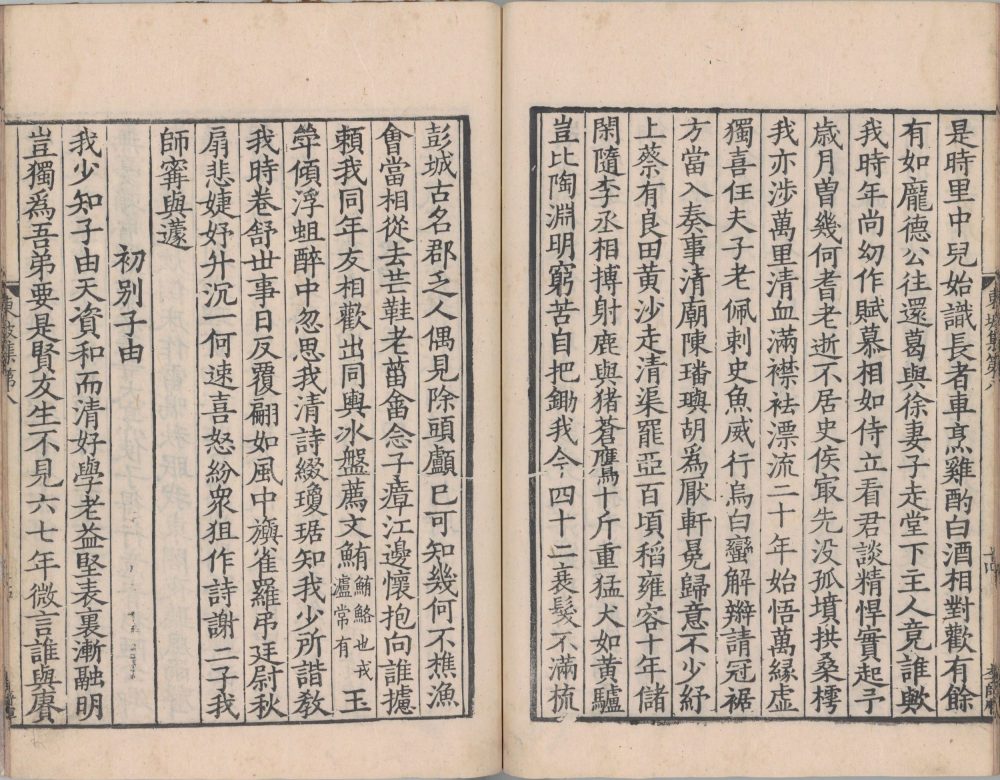 是時里中兒始識長者車烹雞酌白酒相對歡有餘
有如龐德公往還葛與徐妻子走堂下主人竟誰歟
我時年尚幼作賦慕相如侍立看君談精悍實起予
歲月曾幾何耆老逝不居史侯㝡先没孤墳拱桑樗
我亦涉萬里清血滿襟袪漂流二十年始悟萬緣虛
獨喜任夫子老佩刺史魚威行烏白蠻解辮請冠裾
方當入奏事清廟陳璠璵胡爲厭軒冕歸意不少紓
上蔡有良田黄沙走清渠罷亞百頃稻雍容十年儲
閑隨李丞相搏射鹿與猪蒼鷹十斤重猛犬如黄驢
豈比陶淵明窮苦自把鋤我今四十二衰髮不滿梳
彭城古名郡乏人偶見除頭顱已可知幾何不樵漁
會當相從去芒鞋老菑畬念子瘴江邊懷抱向誰攄
賴我同年友相歡出同輿冰盤薦文鮪鮪鮥也戎瀘常有玉
斝傾浮蛆醉中忽思我清詩綴瓊琚知我少所諧教
我時卷舒世事日反覆翩如風中旟雀羅弔廷尉秋
扇悲婕妤升沉一何速喜怒紛衆狙作詩謝二子我
師甯與蘧
初别子由
我少知子由天資和而清好學老益堅表裏漸融明
豈獨爲吾弟要是賢友生不見六七年微言誰與賡
東坡集第八